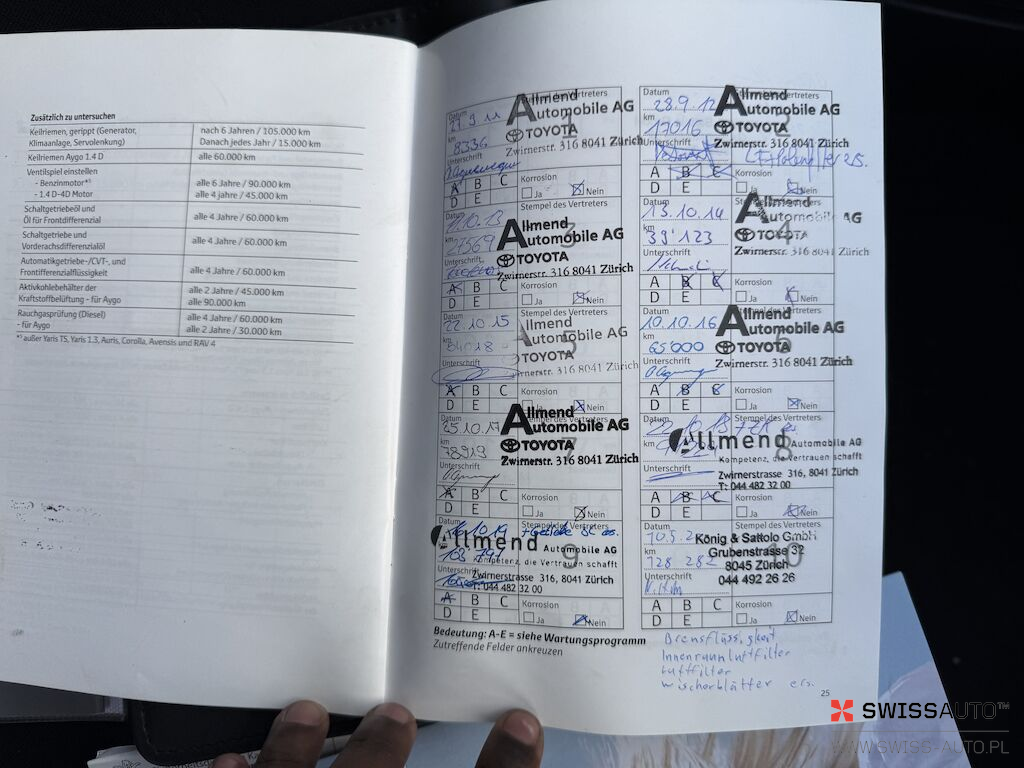 Zusätzlich zu untersuchen
Keilriemen, gerippt (Generator, Klimaanlage, Servolenkung)
nach 6 Jahren / 105.000 km
Danach jedes Jahr / 15.000 km
Keilriemen Aygo 1.4 D
alle 60.000 km
Ventilspiel einstellen
- Benzinmotor*¹
alle 6 Jahre / 90.000 km
- 1.4 D-4D Motor
alle 4 Jahre / 45.000 km
Schaltgetriebeöl und
Öl für Frontdifferenzial
alle 4 Jahre / 60.000 km
Schaltgetriebe und
Vorderachsdifferenzialöl
alle 4 Jahre / 60.000 km
Automatikgetriebe-/CVT-, und
Frontdifferenzialflüssigkeit
alle 4 Jahre / 60.000 km
Aktivkohlebehälter der
Kraftstoffbelüftung - für Aygo
alle 2 Jahre / 45.000 km
alle 90.000 km
Rauchgasprüfung (Diesel)
- für Aygo
alle 4 Jahre / 60.000 km
alle 2 Jahre / 30.000 km
*¹ außer Yaris TS, Yaris 1.3, Auris, Corolla, Avensis und RAV 4
Datum
8336
km
Unterschrift
Allmend
Automobile AG
TOYOTA
Zwirnerstr. 316 8041 Zürich
A B C
D E
Korrosion
Ja Nein
Datum
28.9.12
km
17016
Unterschrift
Allmend
Automobile AG
TOYOTA
Zwirnerstr. 316 8041 Zürich
A B C
D E
Korrosion
Ja Nein
Datum
km
27569
Unterschrift
Stempel des Vertreters
3
Allmend
Automobile AG
TOYOTA
Zwirnerstr. 316 8041 Zürich
A B C
D E
Korrosion
Ja Nein
Datum
13.10.14
km
39'123
Unterschrift
Allmend
Automobile AG
TOYOTA
Zwirnerstr. 316 8041 Zürich
A B C
D E
Korrosion
Ja Nein
Datum
22.10.15
km
Unterschrift
Stempel des Vertreters
5
Allmend
Automobile AG
TOYOTA
Zwirnerstr. 316 8041 Zürich
A B C
D E
Korrosion
Ja Nein
Datum
10.10.16
km
65'000
Unterschrift
Stempel des Vertreters
6
Allmend
Automobile AG
TOYOTA
Zwirnerstr. 316 8041 Zürich
A B C
D E
Korrosion
Ja Nein
Datum
25.10.17
km
78919
Unterschrift
7
Allmend
Automobile AG
TOYOTA
Zwirnerstr. 316 8041 Zürich
A B C
D E
Korrosion
Ja Nein
Datum
Stempel des Vertreters
8
Allmend Automobile AG
Kompetenz, die Vertrauen schafft
Unterschrift
Zwirnerstrasse 316, 8041 Zürich
T: 044 482 32 00
A B C
D E
Korrosion
Ja Nein
Datum
Stempel des Vertreters
9
Allmend Automobile AG
Kompetenz, die Vertrauen schafft
Unterschrift
Zwirnerstrasse 316, 8041 Zürich
T: 044 482 32 00
A B C
D E
Korrosion
Ja Nein
Datum
Stempel des Vertreters
10
König & Sattolo GmbH
Grubenstrasse 32
km
128 282
8045 Zürich
Unterschrift
044 492 26 26
A B C
D E
Korrosion
Ja Nein
Bedeutung: A-E = siehe Wartungsprogramm
Zutreffende Felder ankreuzen
Bremsflüssigkeit
Innenraumluftfilter
Luftfilter
Wischerblätter ers.
25
SWISSAUTO™
WWW.SWISS-AUTO.PL